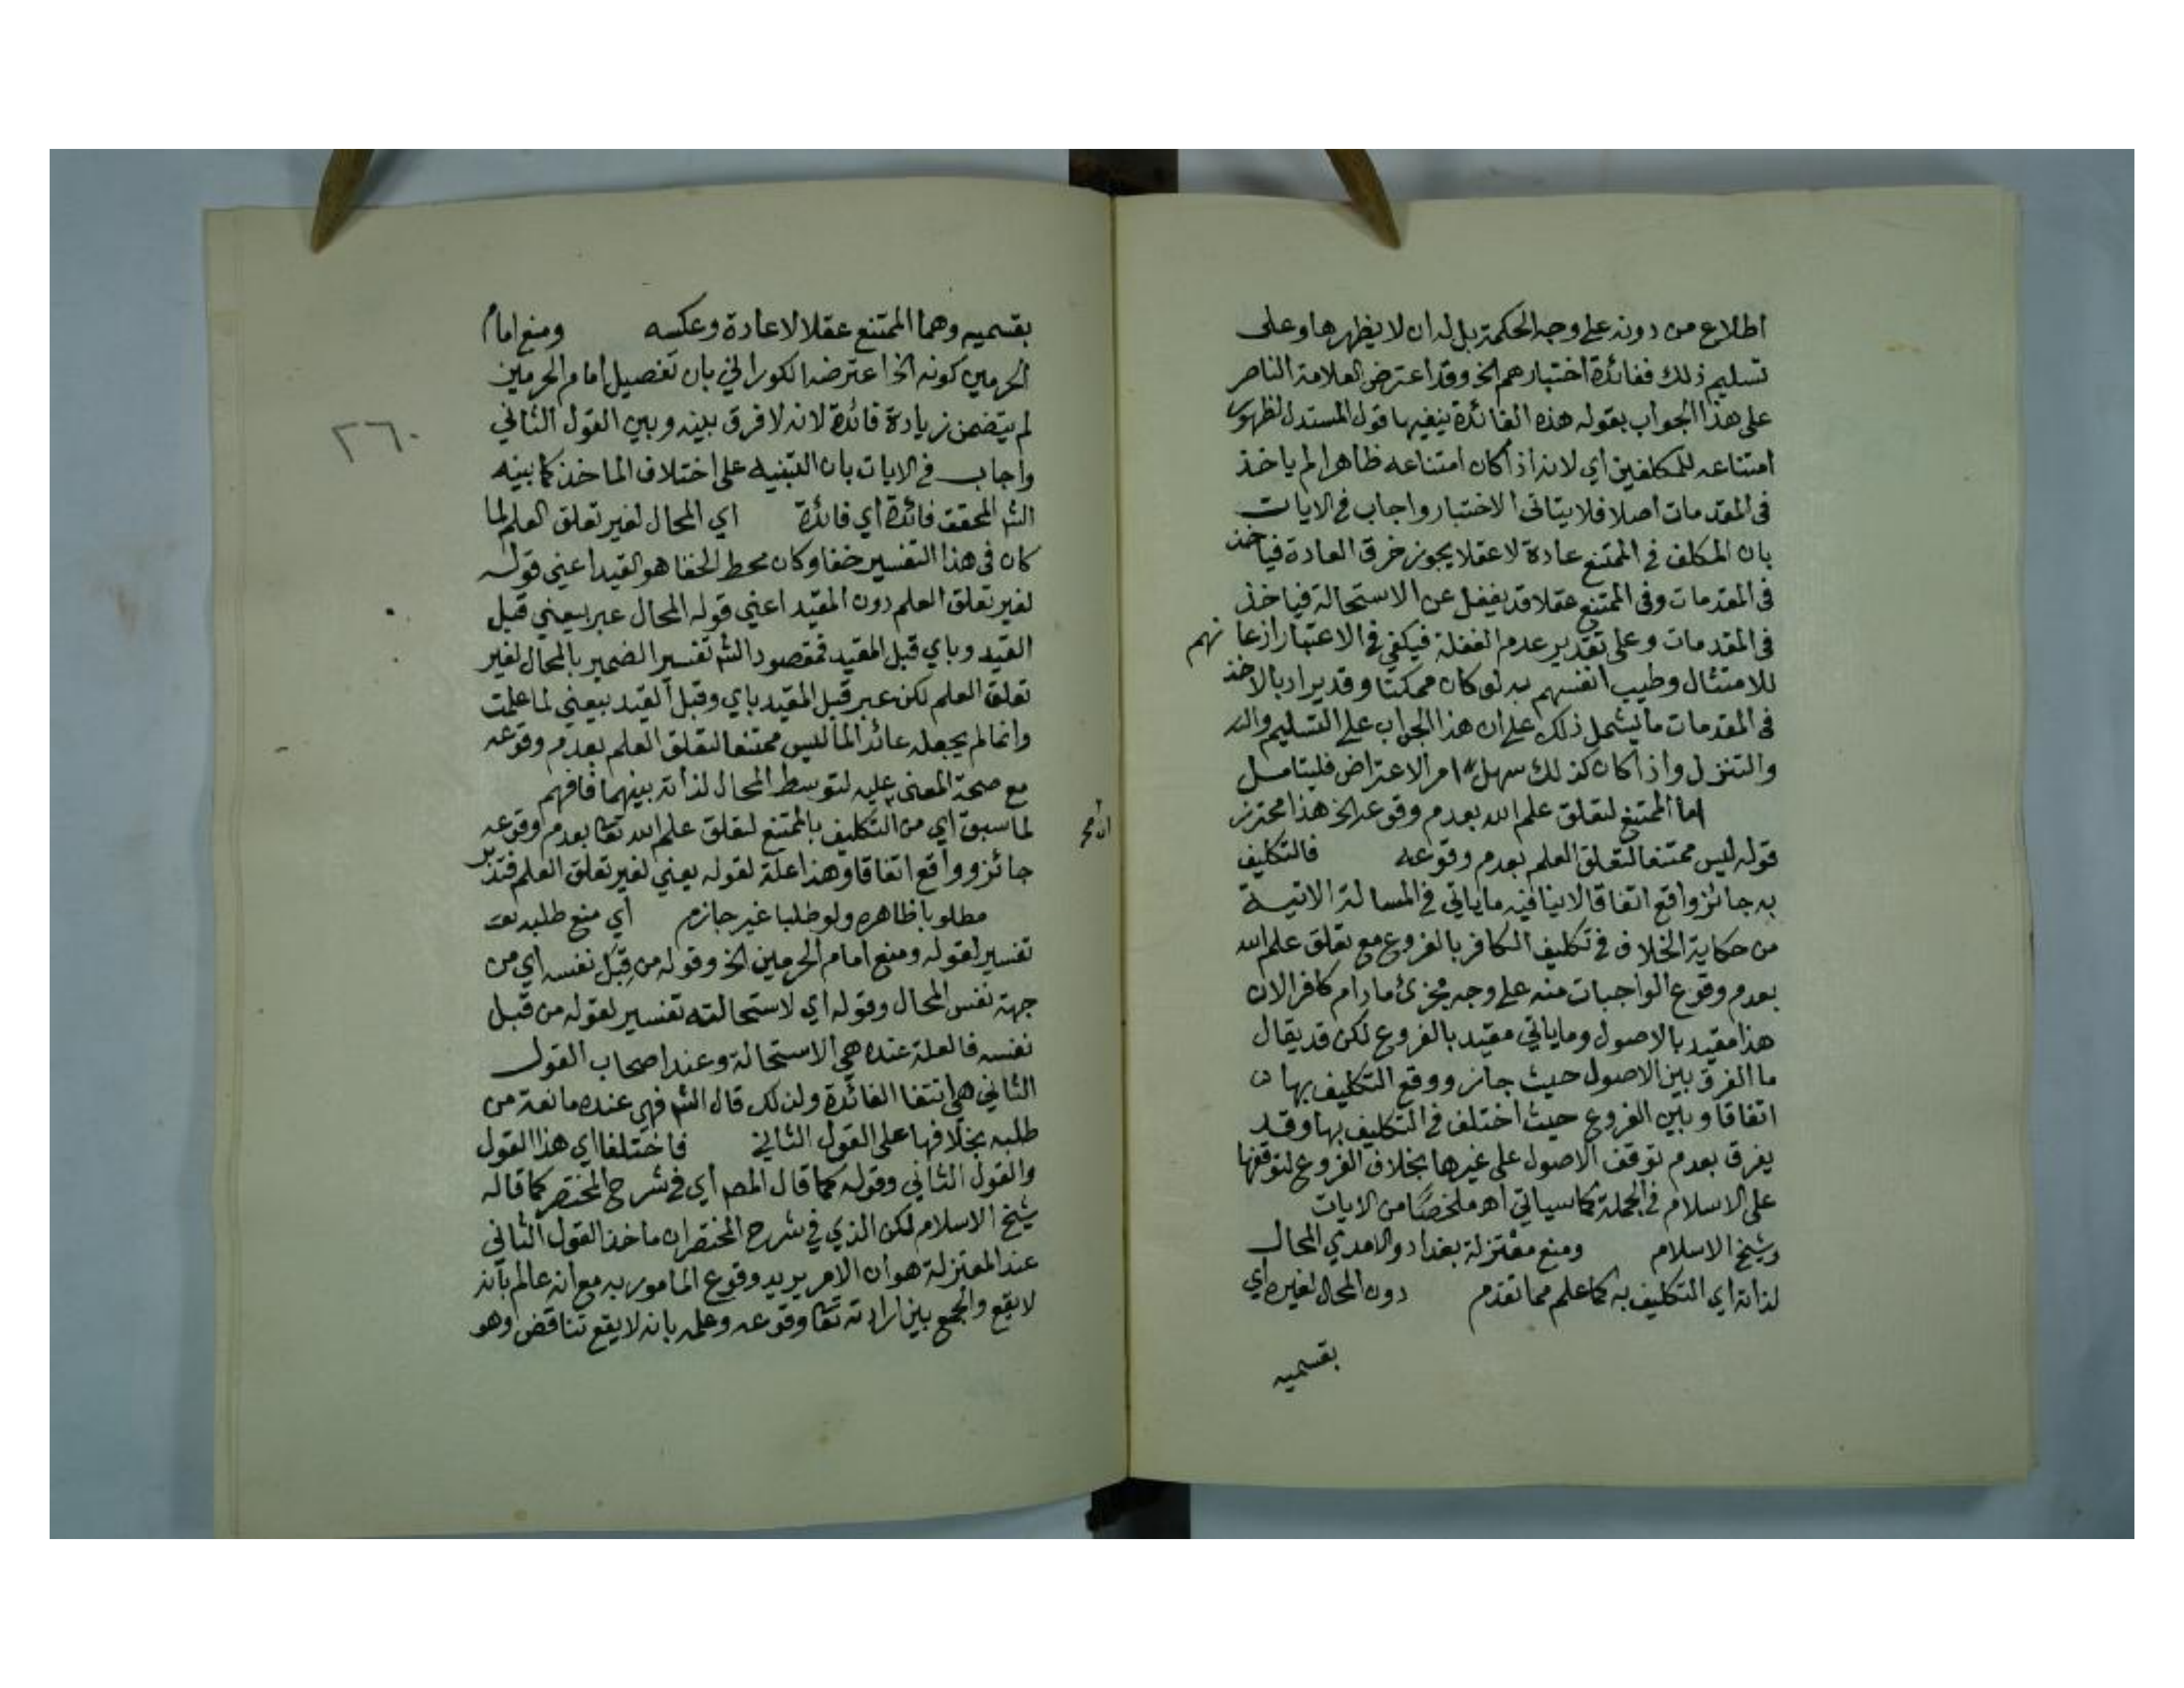 اطلاع من دونه على وجه الحكمة بل له ان لا يظهرها وعلى
تسليم ذلك ففائدة اختبارهم الخ وقد اعترض العلامة الناصر
على هذا الجواب بقوله هذه الفائدة ينفيها قول المستدل لظهور
امتناعه للمكلفين اي لانه اذا كان امتناعه ظاهرا لم ياخذ
في المقدمات اصلا فلا يتاتى الاختبار واجاب في الايات
بان المكلف في الممتنع عادة لا عقلا يجوز خرق العادة فياخذ
في المقدمات وفي الممتنع عقلا قد يغفل عن الاستحالة فياخذ
في المقدمات وعلى تقدير عدم الغفلة فيكفي في الاعتبار اذعانهم
للامتثال وطيب انفسهم به لو كان ممكنا وقد يراد بالاخذ
في المقدمات ما يشمل ذلك على ان هذا الجواب على التسليم
والتنزل واذا كان كذلك سهل امر الاعتراض فليتامل
اما الممتنع لتعلق علم الله بعدم وقوعه الخ هذا محترز
قوله ليس ممتنعا لتعلق العلم بعدم وقوعه فالتكليف
به جائز واقع اتفاقا لا ينافيه ما ياتي في المسالة الاتية
من حكاية الخلاف في تكليف الكافر بالفروع مع تعلق علم الله
بعدم وقوع الواجبات منه على وجه مجزئ ما دام كافرا لان
هذا مقيد بالاصول وما ياتي مقيد بالفروع لكن قد يقال
ما الفرق بين الاصول حيث جاز ووقع التكليف بها
اتفاقا وبين الفروع حيث اختلف في التكليف بها وقد
يفرق بعدم توقف الاصول على غيرها بخلاف الفروع لتوقفها
على الاسلام في الجملة كما سياتي اهـ ملخصا من الايات
وشيخ الاسلام ومنع معتزلة بغداد والامدي المحال
لذاته اي التكليف به كما علم مما تقدم دون المحال لغيره اي
بقسميه
بقسميه وهما الممتنع عقلا لا عادة وعكسه ومنع امام
الحرمين كونه الخ اعترضه الكوراني بان تفصيل امام الحرمين
لم يتضمن زيادة فائدة لانه لا فرق بينه وبين القول الثاني
واجاب في الايات بان التنبيه على اختلاف الماخذ كما بينه
الش المحقق فائدة اي فائدة اي المحال لغير تعلق العلم لما
كان في هذا التفسير خفا وكان محط الخفا هو القيد اعني قوله
لغير تعلق العلم دون المقيد اعني قوله المحال عبر بيعني قبل
القيد وباي قبل المقيد فمقصود الش تفسير الضمير بالمحال لغير
تعلق العلم لكن عبر قبل المقيد باي وقبل القيد بيعني لما علمت
وانما لم يجعله عائدا لما ليس ممتنعا لتعلق العلم بعدم وقوعه
مع صحة المعنى عليه لتوسط المحال لذاته بينهما فافهم
لما سبق اي من ان التكليف بالممتنع لتعلق علم الله تعا بعدم وقوعه
جائز وواقع اتفاقا وهذا علة لقوله يعني لغير تعلق العلم فتدبر
مطلوبا ظاهره ولو طلبا غير جازم اي منع طلبه
تفسير لقوله ومنع امام الحرمين الخ وقوله من قبل نفسه اي من
جهة نفس المحال وقوله اي لاستحالته تفسير لقوله من قبل
نفسه فالعلة عنده هي الاستحالة وعند اصحاب القول
الثاني هي انتفا الفائدة ولذلك قال الش فهي عنده مانعة من
طلبه بخلافها على القول الثاني فاختلفا اي هذا القول
والقول الثاني وقوله كما قال المص اي في شرح المختصر كما قاله
شيخ الاسلام لكن الذي في شرح المختصر ان ماخذ القول الثاني
عند المعتزلة هو ان الامر يريد وقوع المامور به مع انه عالم بانه
لا يقع والجمع بين ارادته تعا وقوعه وعلمه بانه لا يقع تناقض وهو
٢٦٠